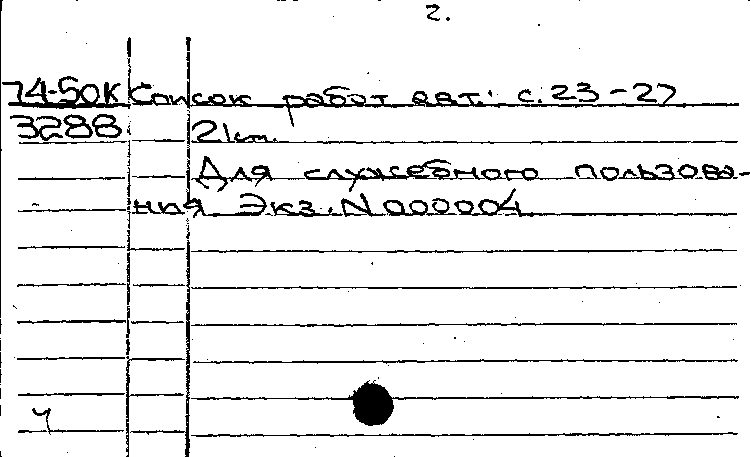 2.
74-50К Список работ авт.: с. 23-27
3288 21 см.
Для служебного пользова-
ния Экз. N 000004
Ч